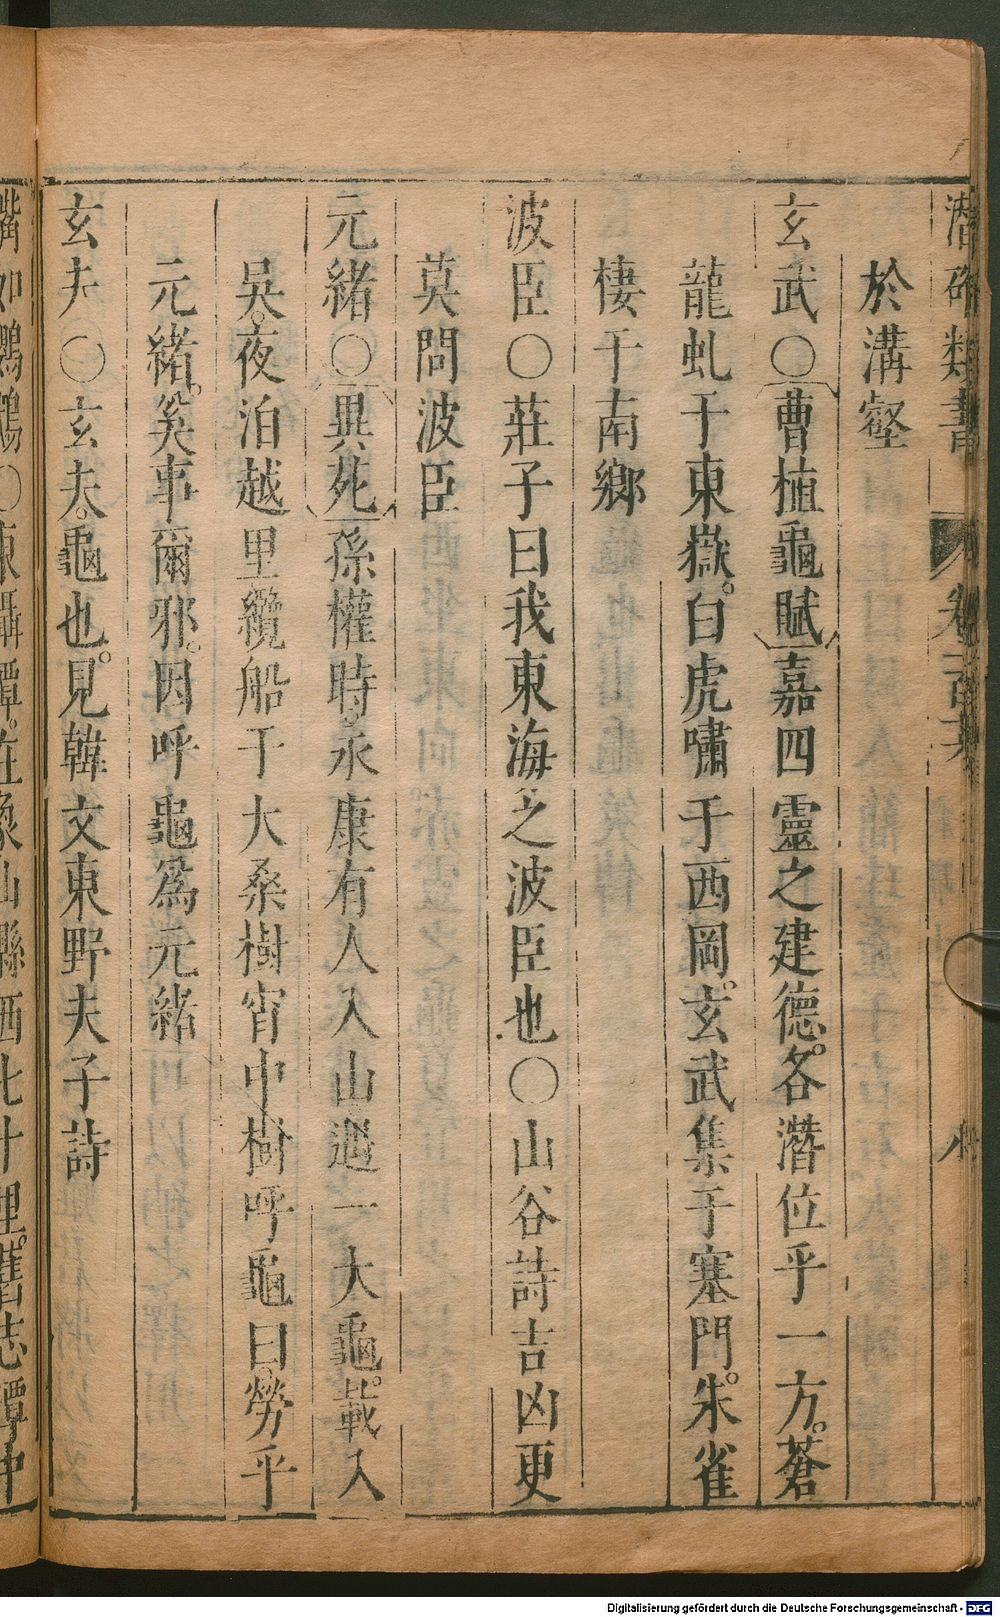 潛確類書 卷一百 八
於溝壑
玄武〇曹植龜賦嘉四靈之建德。各潛位乎一方。蒼
龍虬于東嶽。白虎嘯于西岡。玄武集于塞門。朱雀
棲于南鄉
波臣〇莊子曰我東海之波臣也〇山谷詩吉凶更
莫問波臣
元緒〇異苑孫權時。永康有人入山遇一大龜。載入
吳。夜泊越里纜船于大桑樹宵中樹呼龜曰勞乎
元緒。奚事爾邪。因呼龜為元緒
玄夫〇玄夫。龜也。見韓文東野夫子詩
嘴如鸚鵡〇東躡潭。在象山縣西北十里。舊志潭中
Digitalisierung gefördert durch die Deutsche Forschungsgemeinschaft - DFG